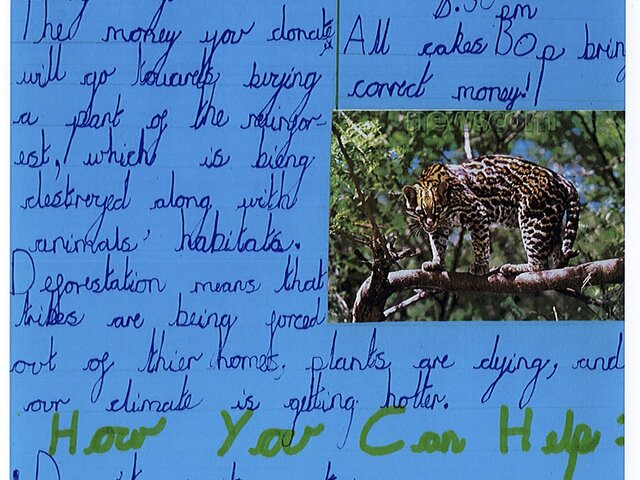 The money you donate
will go towards buying
a part of the rainfor-
est, which is bieng
destroyed along with
animals' habitats.
Deforestation means that
tribes are being forced
out of thier homes, plants are dying, and
our climate is getting hotter.
pm
All cakes 80p brin
correct money!
newscom
How You Can Help: